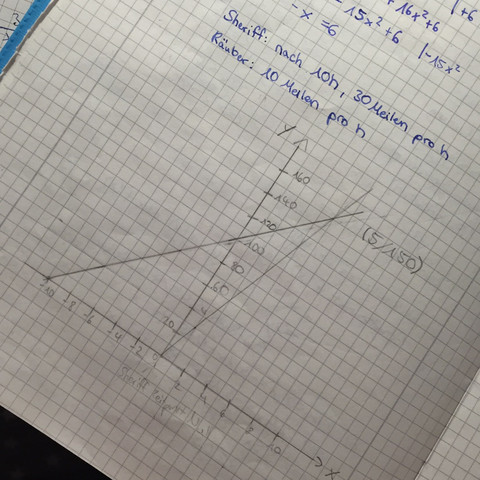 + 16x²+6 |+6
- 15x²+6 |-15x²
-x = 6
Sheriff: nach 10h, 30 Meilen pro h
Räuber: 10 Meilen pro h
y
160
140
120
100
80
60
20
(5/150)
-10 -8 -6 -4 -2 0 2 4 6 8 10
x